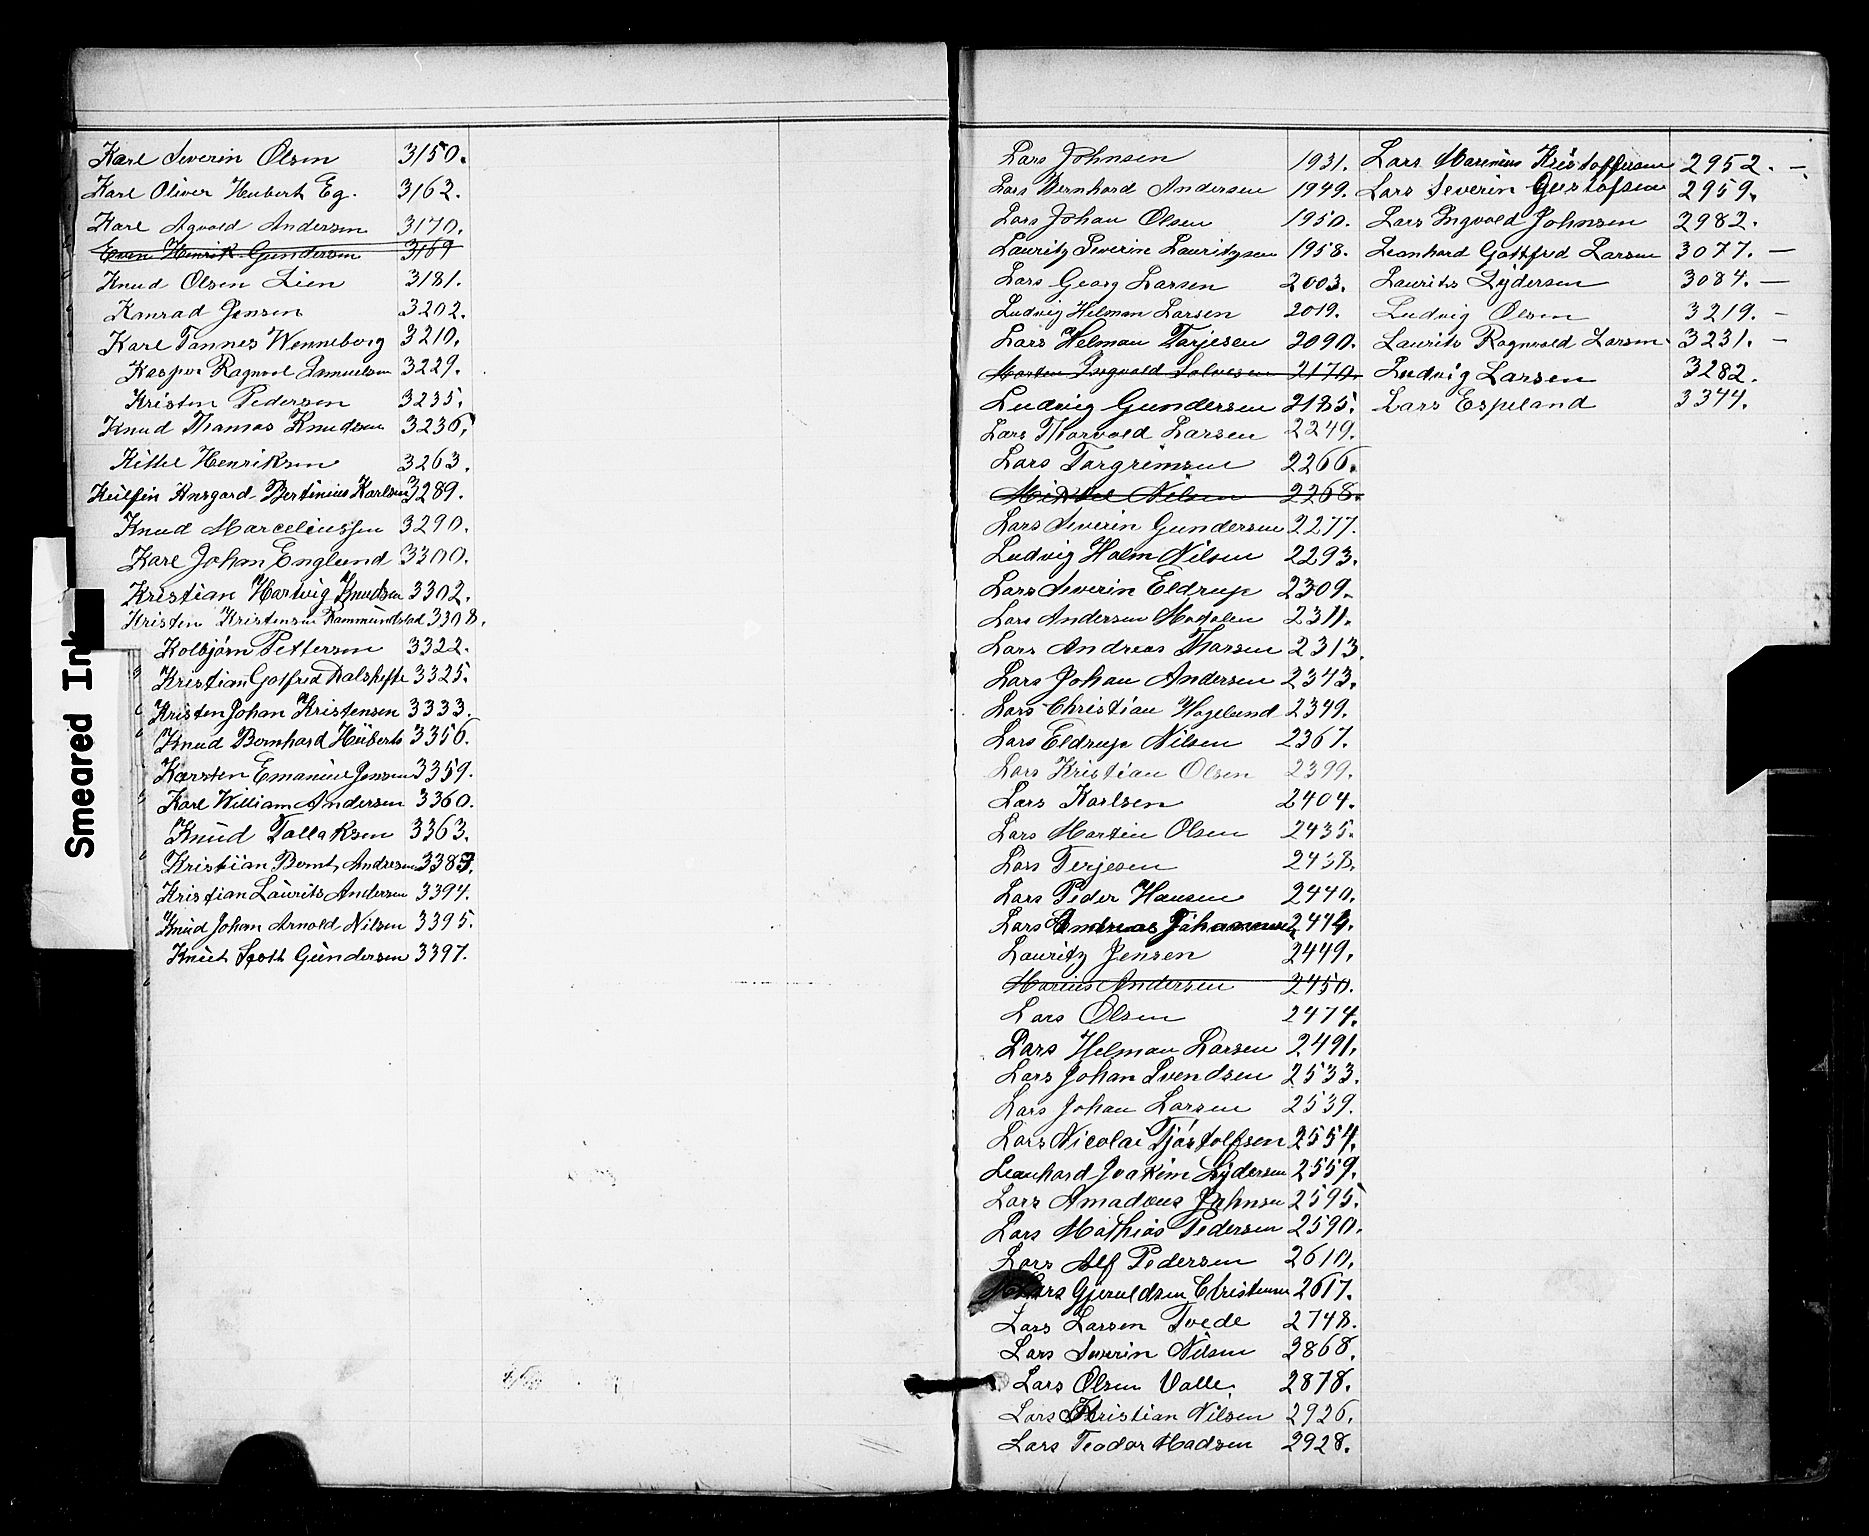 Karl Severin Olsen 3150.
Karl Oliver Hubert Eg. 3162.
Karl Agvald Andersen 3170.
Even Henrik Gundersen 3169
Knud Olsen Lien 3181.
Konrad Jensen 3202.
Karl Tønnes Wenneborg 3210.
Kasper Ragnvol Samuelsen 3229.
Kristen Pedersen 3235.
Knud Thomas Knudsen 3236.
Kittel Henriksen 3263.
Ansgard Bertinius Karlsen 3289.
Knud Marceliussen 3290.
Karl Johan Englund 3300.
Kristian Hartvig Knudsen 3302.
Kristen Kristensen Rammundstad 3308.
Kolbjørn Pettersen 3322.
Kristian Gotfred Dalshefte 3325.
Kristen Johan Kristensen 3333.
Knud Bernhard Huberts 3356.
Karsten Emanuel Jensen 3359.
Karl William Andersen 3360.
Knud Tallaksen 3363.
Kristian Bernt Andresen
Kristian Laurits Andersen 3394.
Knud Johan Arnold Nilsen 3395.
Knut Scott Gundersen 3397.
Lars Johnsen 1931.
Lars Bernhard Andersen 1949.
Lars Johan Olsen 1950.
Lauritz Severin Lauritzsen 1958.
Lars Georg Larsen 2003.
Ludvig Helman Larsen 2019.
Lars Helman Tarjesen 2090.
Morten Ingvald Salvesen 2170.
Ludvig Gundersen 2185.
Lars Thorvald Larsen 2249.
Lars Targrimsen 2266.
Mikkel Nilsen 2268.
Lars Severin Gundersen 2277.
Ludvig Holm Nilsen 2293.
Lars Severin Eldrup 2309.
Lars Andersen Modalen 2311.
Lars Andreas Thorsen 2313.
Lars Johan Andersen 2343.
Lars Christian Hageland 2349.
Lars Eldrup Nilsen 2367.
Lars Kristian Olsen 2399.
Lars Karlsen 2404.
Lars Martin Olsen 2435.
Lars Terjesen 2438.
Lars Peder Hansen 2440.
Lars Andreas Johannesen
Lauritz Jensen 2449.
Marius Andersen 2450.
Lars Olsen 2474.
Lars Helman Larsen 2491.
Lars Johan Svendsen 2533.
Lars Johan Larsen 2539.
Lars Nicolai Tjøstolfsen 2554.
Leonhard Joakim Lydersen 2559.
Lars Amadeus Johnsen 2595.
Lars Mathias Pedersen 2590.
Lars Alf Pedersen 2610.
Lars Gjeruldsen Christensen 2617.
Lars Larsen Tvede 2748.
Lars Severin Nilsen 2868.
Lars Olsen Valle. 2878.
Lars Kristian Nilsen 2926.
Lars Teodor Madsen 2928.
Lars Marenius Kristoffersen 2952. —
Lars Severin Gustafsen 2959.
Lars Ingvald Johnsen 2982.
Leonhard Gottfred Larsen 3077. —
Laurits Lydersen 3084. —
Ludvig Olsen 3219. —
Laurits Ragnvald Larsen 3231. —
Ludvig Larsen 3282.
Lars Espeland 3344.
Smeared Ink